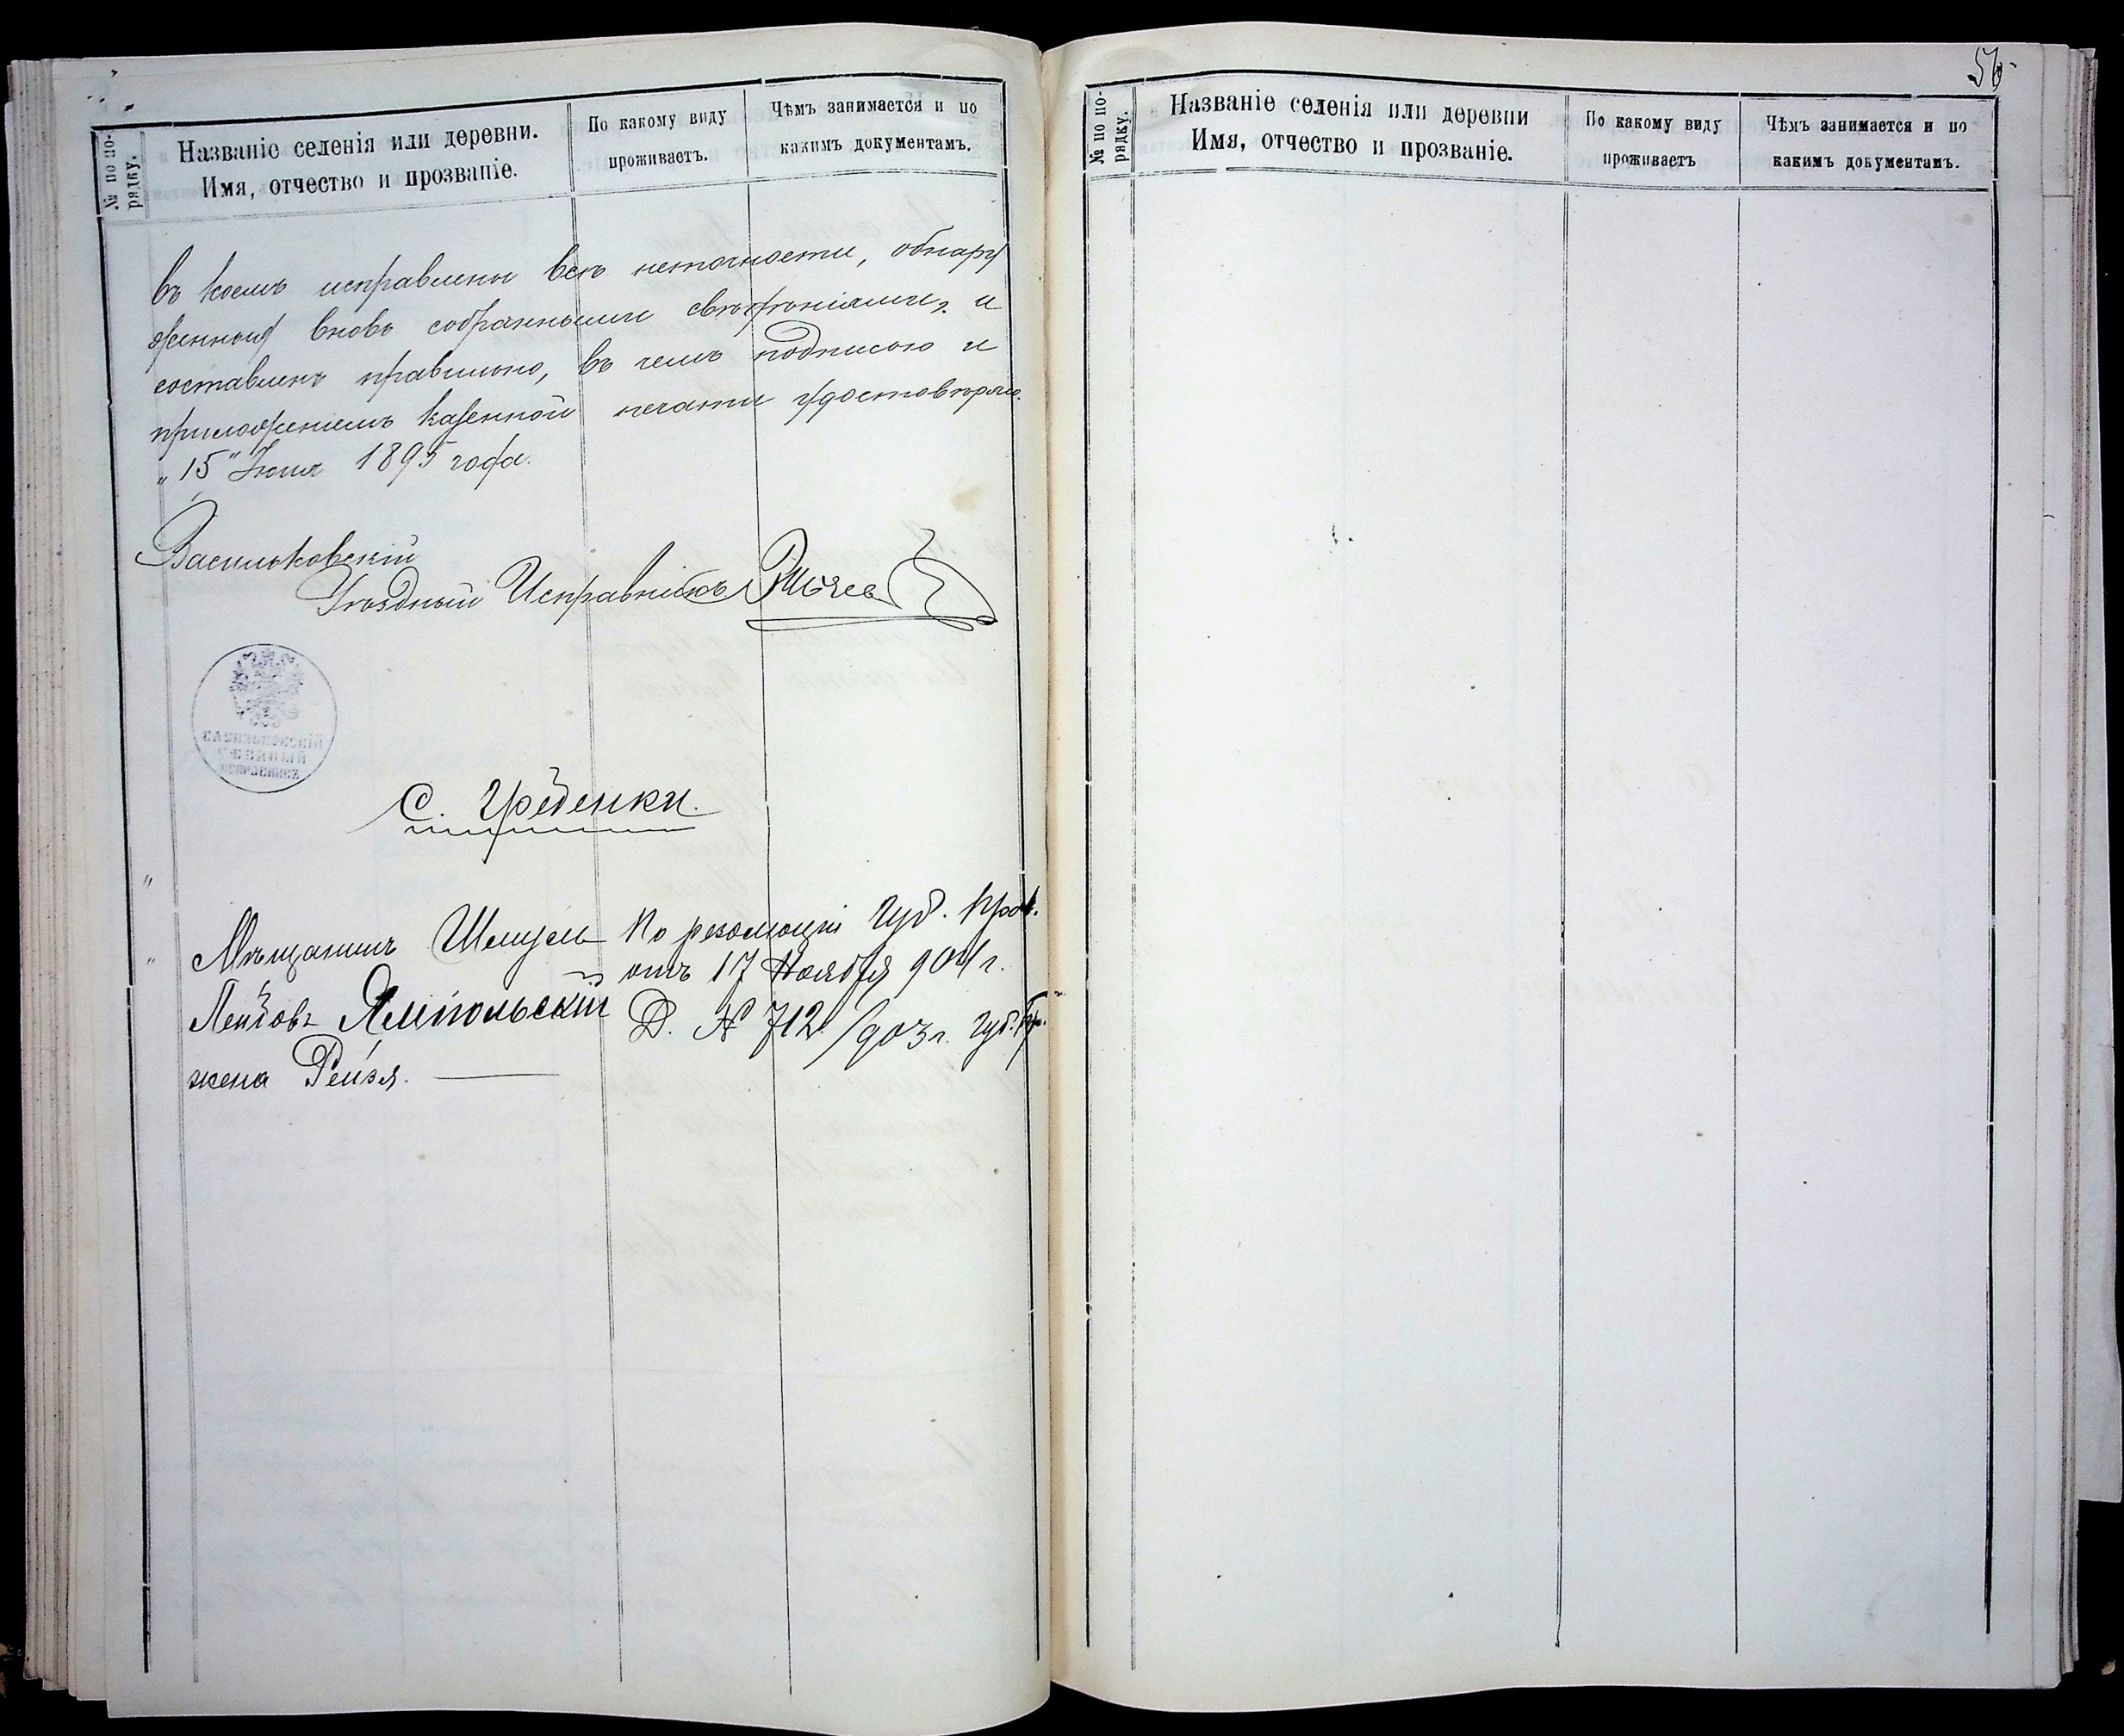 № по по-
рядку.
Названіе селенія или деревни.
Имя, отчество и прозваніе.
По какому виду
проживаетъ.
Чѣмъ занимается и по
какимъ документамъ.
въ коемъ исправлены всѣ неточности, обнару
женныя вновь собранными свѣдѣніями, и
составленъ правильно, въ чемъ подписью и
приложеніемъ казенной печати удостовѣряю.
„15" Іюня 1895 года.
Васильковскій
Уѣздный Исправникъ
ВАСИЛЬКОВСКІЙ
УѢЗДНЫЙ
ИСПРАВНИКЪ
С. Гребенки.
Мѣщанинъ Шмуль По резолюціи Губ. Прав.
отъ 17 Ноября 904 г.
Лейбовъ Ямпольскій Д. № 712/903 г. Губ. Пр.
жена Рейзя.
56
№ по по-
рядку.
Названіе селенія или деревни
Имя, отчество и прозваніе.
По какому виду
проживаетъ
Чѣмъ занимается и по
какимъ документамъ.